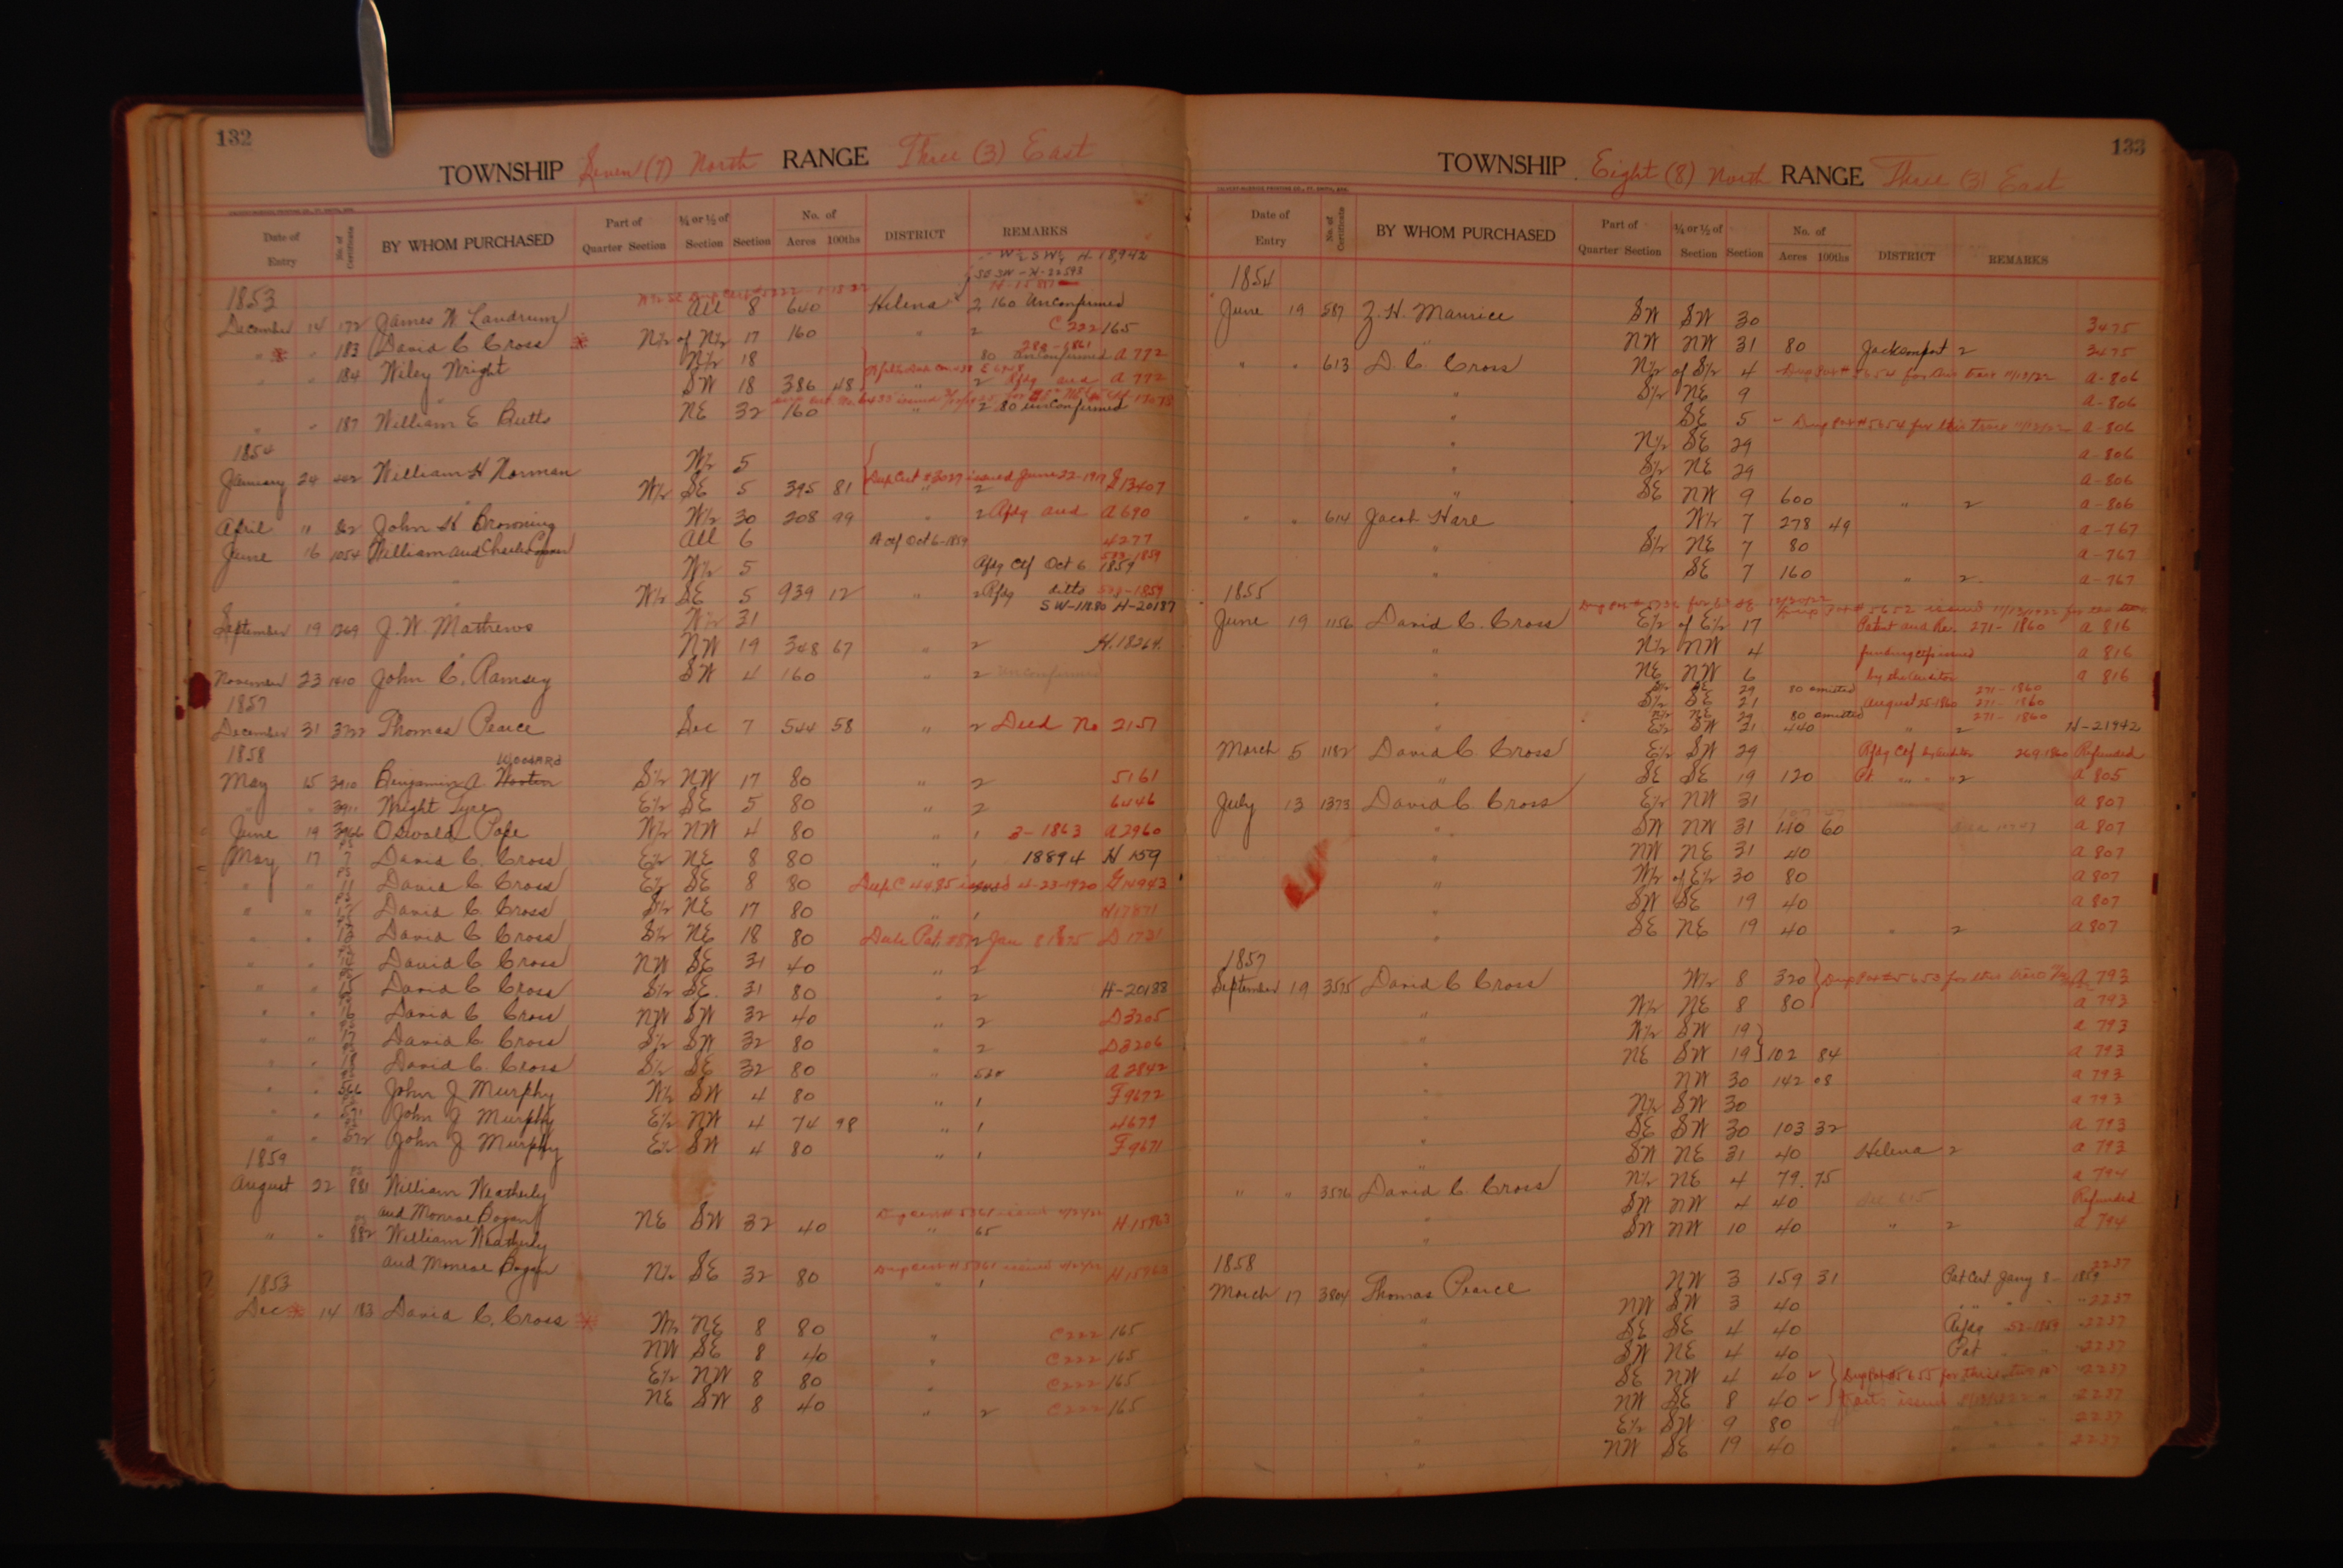 132
TOWNSHIP Seven (7) North RANGE Three (3) East
Date of Entry No. of Certificate BY WHOM PURCHASED Part of Quarter Section ¼ or ½ of Section Section No. of Acres 100ths DISTRICT REMARKS
W½ SW¼ H-18,942
SE SW - H-22593
1853
December 14 172 James W Landrum All 8 640 Helena 2 160 Unconfirmed
" " 183 David C Cross N½ of N½ 17 160 " 2 C222 165
N½ 18 80 unconfirmed A 772
" " 184 Wiley Wright SW 18 386 48 " 2 Rfdg and A 772
" " 187 William E Butts NE 32 160 " 2 80 unconfirmed
1854
W½ 5
January 24 William H Norman W½ SE 5 395 81 Dup Cert #3027 issued June 22-1917 " 2 G 13407
April 11 John H Browning W½ 30 208 99 " 2 Rfdg and A 690
June 16 1054 William and Charles All 6 Oct 6-1859 4277
W½ 5 Rfdg Ctf Oct 6 1859
" W½ SE 5 939 12 " 2 Rfdg ditto
SW-11880 H-20187
September 19 1369 J. W. Mathews W½ 31
" NW 19 348 67 " 2 H.18264
November 23 1410 John C. Ramsey SW 4 160 " 2 Unconfirmed
1857
December 31 3722 Thomas Pearce Sec 7 544 58 " 2 Deed No 2157
1858
WOODARD
May 15 3910 Benjamin A S½ NW 17 80 " 2 5161
" " 3911 Wright Tyre E½ SE 5 80 " 2 6446
June 19 3966 Oswald Pope W½ NW 4 80 " 1 3-1863 A2960
May 17 7 David C. Cross E½ NE 8 80 " 1 18894 H 159
" " 11 David C Cross E½ SE 8 80 Dup C 4485 issued 4-23-1920 G14943
" " David C. Cross S½ NE 17 80 " 1 H17871
" " David C Cross S½ NE 18 80 2 Jan 8 1875 D 1731
" " David C Cross NW SE 31 40 " 2
" " David C Cross S½ SE 31 80 " 2 H-20188
" " 16 David C Cross NW SW 32 40 " 2 D3205
" " 17 David C. Cross S½ SW 32 80 " 2 D3206
" " David C. Cross S½ SE 32 80 " A 2842
" " 566 John J Murphy W½ SW 4 80 " 1 F9672
" " John J Murphy E½ NW 4 74 98 " 1 4679
" " 572 John J Murphy E½ SW 4 80 " 1 F9671
1859
August 22 881 William Weatherly
and Monroe Bogan NE SW 32 40 " 65
" " 882 William Weatherly
and Monroe Bogan N½ SE 32 80 " 1
1853
Dec 14 183 David C. Cross W½ NE 8 80 " C222 165
NW SE 8 40 " C222 165
E½ NW 8 80 " C222 165
NE SW 8 40 " 2 C222 165
133
TOWNSHIP Eight (8) North RANGE Three (3) East
Date of Entry No. of Certificate BY WHOM PURCHASED Part of Quarter Section ¼ or ½ of Section Section No. of Acres 100ths DISTRICT REMARKS
1854
June 19 587 Z. H. Maurice SW SW 30 3475
" NW NW 31 80 Jacksonport 2 3475
" " 613 D C Cross N½ of S½ 4 A-806
" S½ NE 9 A-806
" SE 5 - Dup Pat #5654 for this Tract A-806
" N½ SE 29 A-806
" S½ NE 29 A-806
" SE NW 9 600 " 2 A-806
" " 614 Jacob Hare W½ 7 278 49 A-767
" S½ NE 7 80 A-767
" SE 7 160 " 2 A-767
1855
June 19 1156 David C. Cross E½ of E½ 17 Patent and Re. 271-1860 A 816
" N½ NW 4 funding ctfs issued A 816
" NE NW 6 by the Auditor A 816
S½ SE 29 80 omitted 271-1860
" S½ SE 21 August 25-1860 271-1860
N½ NE 29 80 omitted 271-1860
" E½ SW 21 440 " 2 H-21942
March 5 1182 David C. Cross E½ SW 29 Rfdg Ctf by Auditor 269-1860 Refunded
" SE SE 19 120 Pt " " 2 A 805
July 13 1373 David C. Cross E½ NW 31 A 807
" SW NW 31 110 60 A 807
" NW NE 31 40 A 807
" W½ of E½ 30 80 A 807
" SW SE 19 40 A 807
" SE NE 19 40 " 2 A 807
1857
September 19 3575 David C Cross W½ 8 320 Dup Pat #5653 for this tract A 793
" W½ NE 8 80 A 793
" W½ SW 19 A 793
" NE SW 19 102 84 A 793
" NW 30 142 08 A 793
" N½ SW 30 A 793
" SE SW 30 103 32 A 793
" SW NE 31 40 Helena 2 A 793
" " 3576 David C. Cross N½ NE 4 79.75 A 794
" SW NW 4 40 Refunded
" SW NW 10 40 " 2 A 794
1858
March 17 3804 Thomas Pearce NW 3 159 31 Pat Cert Jany 8 - 1859 2237
" NW SW 3 40 " " 2237
" SE SE 4 40 Rfdg 52-1859 2237
" SW NE 4 40 Pat 2237
" SE NW 4 40 Dup Pat #5655 for these two 2237
" NW SE 8 40 tracts issued 2237
" E½ SW 9 80 2237
" NW SE 19 40 2237